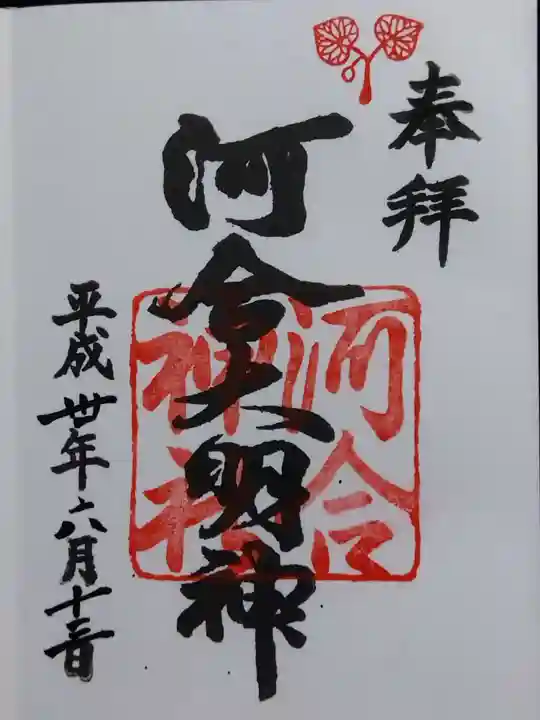 奉拝
河合大明神
河合神社
平成卅年六月十三日